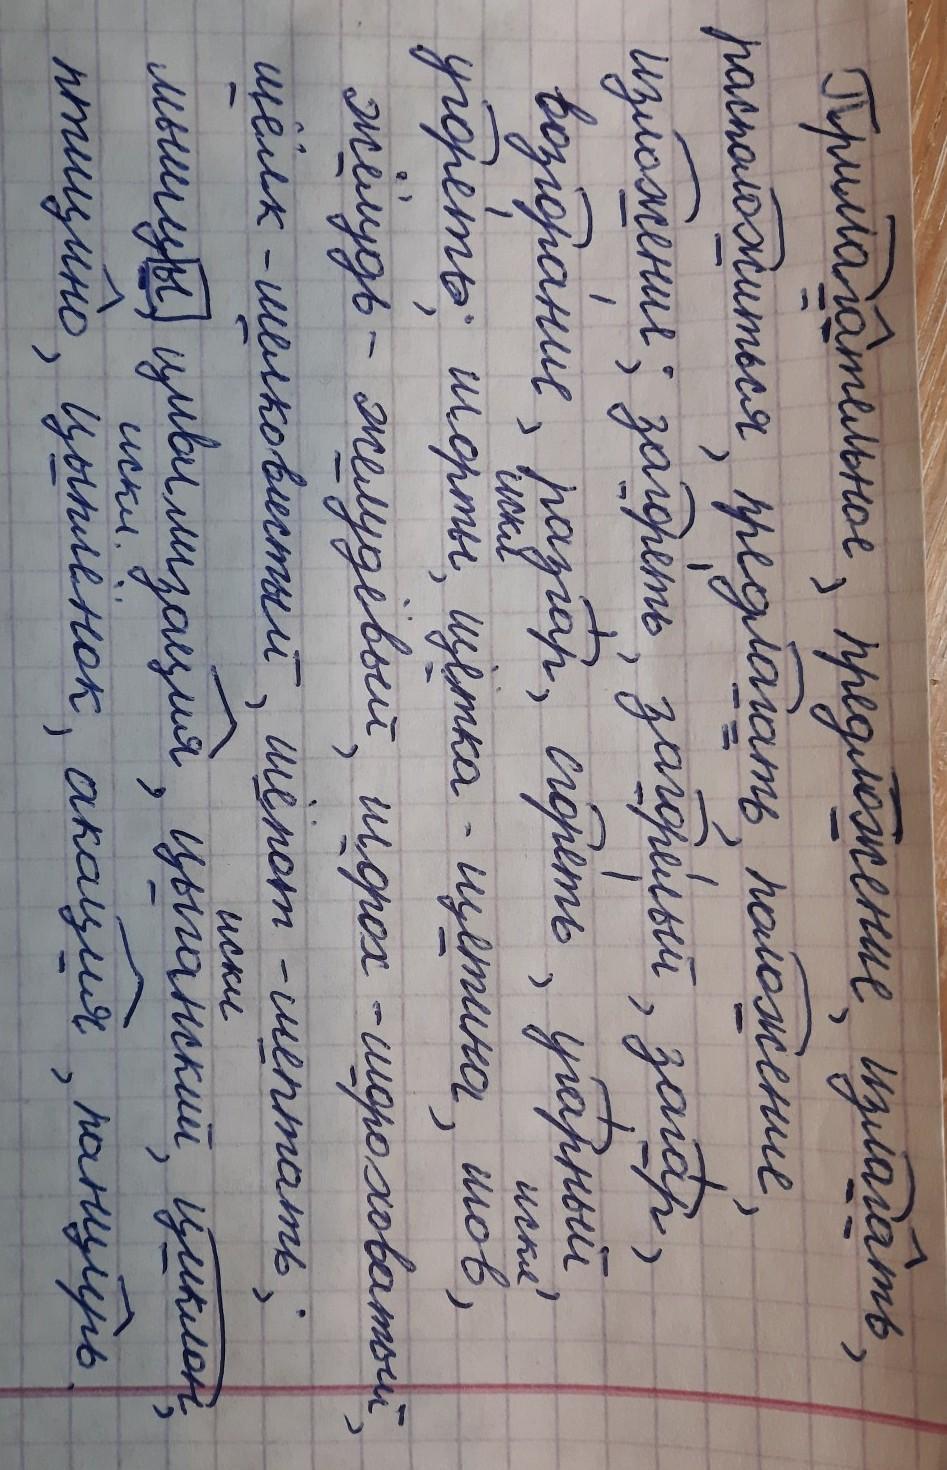 Прилагательное, предложение, излагать,
расположиться, предлагать, положение,
изложение; загореть, загорелый, загар,
возгорание, разгар, сгореть, угарный
искл искл
угореть; шорты, щётка - щетина, шов,
жёлудь - желудёвый, шорох - шороховатый,
шёлк - шелковистый, шёпот - шептать;
искл
мышцы, цивилизация, цыганский, циклон,
искл.
птицыно, цыплёнок, акация, панцирь.